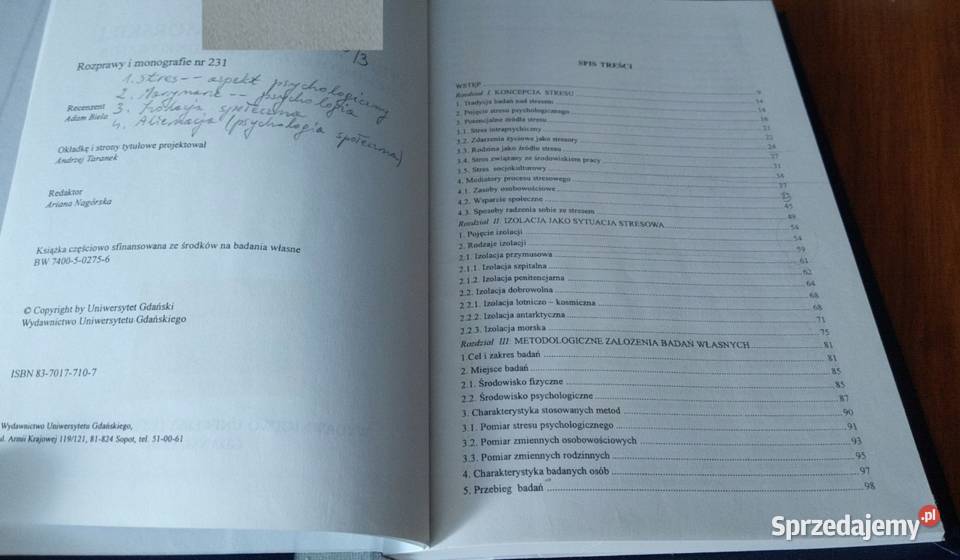 /3
Rozprawy i monografie nr 231
1. Stres -- aspekt psychologiczny
2. Marynarze -- psychologia
Recenzent
3. Izolacja społeczna
Adam Biela
4. Alienacja (psychologia społeczna)
Okładkę i strony tytułowe projektował
Andrzej Taranek
Redaktor
Ariana Nagórska
Książka częściowo sfinansowana ze środków na badania własne
BW 7400-5-0275-6
© Copyright by Uniwersytet Gdański
Wydawnictwo Uniwersytetu Gdańskiego
ISBN 83-7017-710-7
Wydawnictwo Uniwersytetu Gdańskiego
ul. Armii Krajowej 119/121, 81-824 Sopot, tel. 51-00-61
SPIS TREŚCI
WSTĘP
Rozdział I KONCEPCJA STRESU 9
1. Tradycja badań nad stresem 14
2. Pojęcie stresu psychologicznego 14
3. Potencjalne źródła stresu 16
3.1. Stres intrapsychiczny 21
3.2. Zdarzenia życiowe jako stresory 22
3.3. Rodzina jako źródło stresu 24
3.4. Stres związany ze środowiskiem pracy 27
3.5. Stres socjokulturowy 31
4. Mediatory procesu stresowego 34
4.1. Zasoby osobowościowe 37
4.2. Wsparcie społeczne
4.3. Sposoby radzenia sobie ze stresem 45
Rozdział II IZOLACJA JAKO SYTUACJA STRESOWA 49
1. Pojęcie izolacji 54
2. Rodzaje izolacji 54
2.1. Izolacja przymusowa 59
2.1.1. Izolacja szpitalna 61
2.1.2. Izolacja penitencjarna 62
2.2. Izolacja dobrowolna 64
2.2.1. Izolacja lotniczo – kosmiczna 68
2.2.2. Izolacja antarktyczna 68
2.2.3. Izolacja morska 71
Rozdział III METODOLOGICZNE ZAŁOŻENIA BADAŃ WŁASNYCH 75
1.Cel i zakres badań 81
2. Miejsce badań 81
2.1. Środowisko fizyczne 85
2.2. Środowisko psychologiczne 85
3. Charakterystyka stosowanych metod 87
3.1. Pomiar stresu psychologicznego 90
3.2. Pomiar zmiennych osobowościowych 91
3.3. Pomiar zmiennych rodzinnych 93
4. Charakterystyka badanych osób 95
5. Przebieg badań 97
98
Sprzedajemy.pl